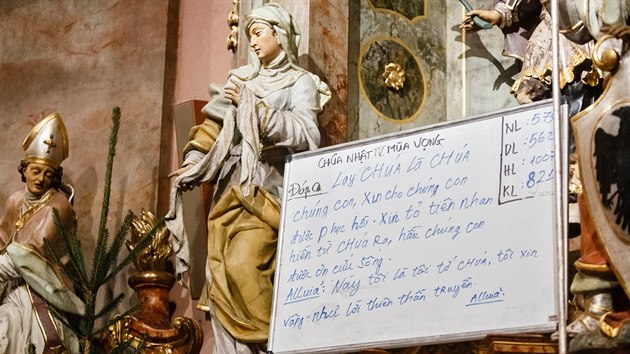 CHÚA NHẬT IV MÙA VỌNG
Đáp Ca Lạy CHÚA là CHÚA
chúng con, Xin cho chúng con
được phục hồi. Xin tỏ tiên nhan
hiền từ CHÚA Ra, hầu chúng con
được ơn cứu Sống.
ALLuia: Này tôi là tôi tớ CHÚA, tôi xin
vâng như lời thiên thần truyền. ALLuia.
NL: 575
DL: 562
HL: 1007
KL: 821